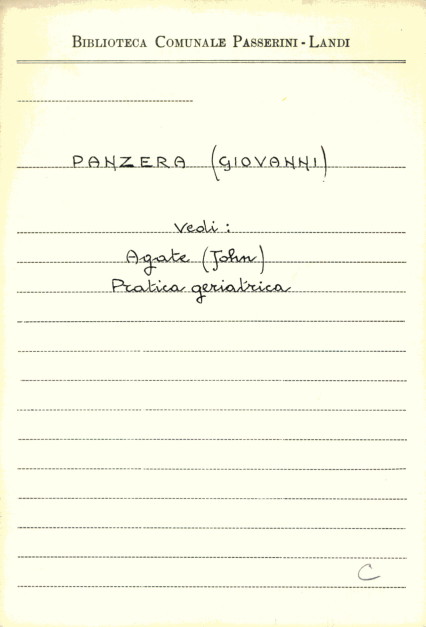 BIBLIOTECA COMUNALE PASSERINI - LANDI
PANZERA (GIOVANNI)
Vedi :
Agate (John)
Pratica geriatrica
C